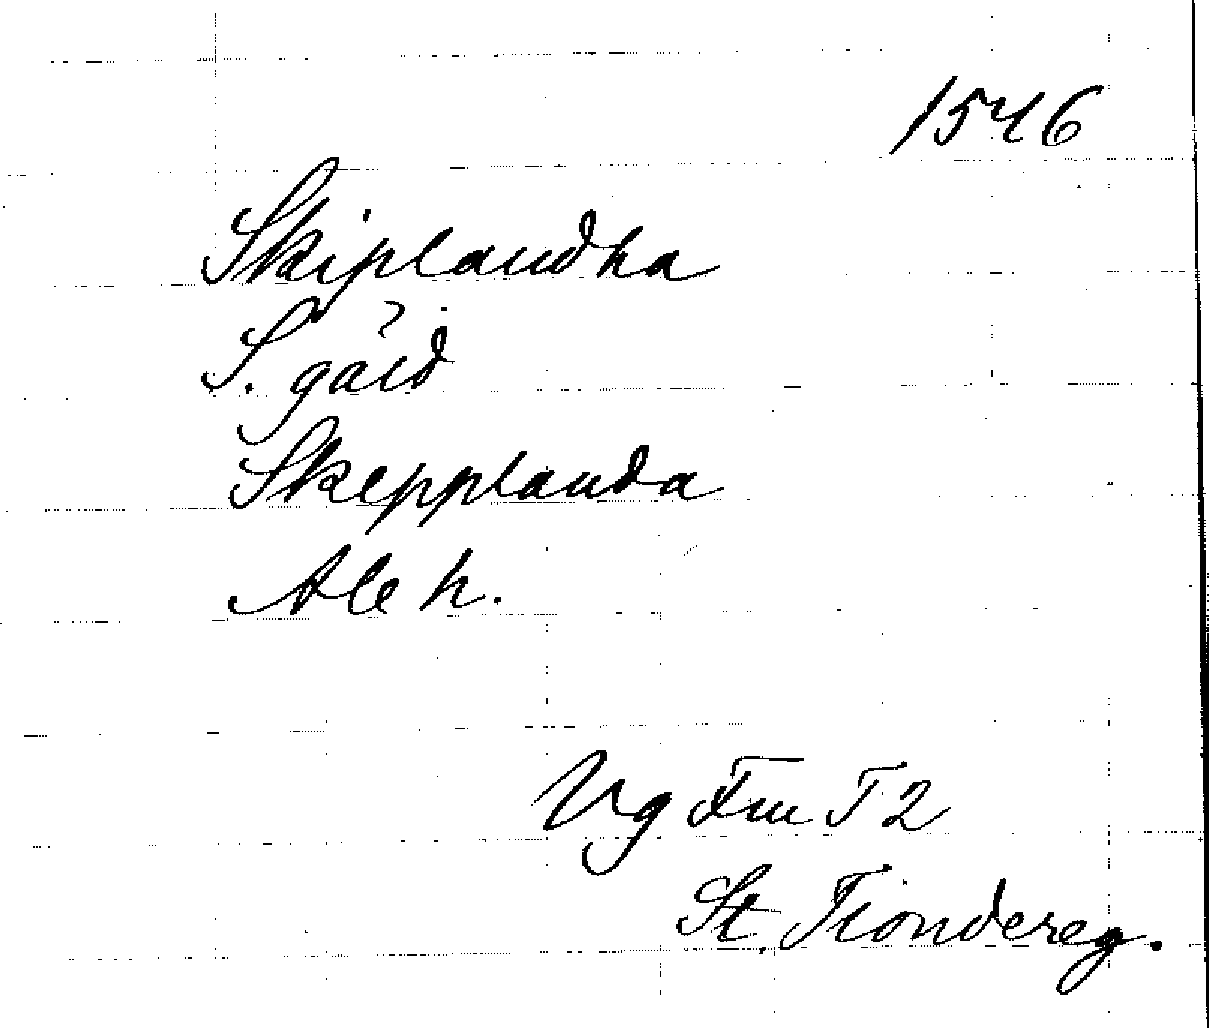 1546
Skiplandha
S. gård
Skepplanda
Ale h.
Vg Fm T 2
St. Tiondereg.